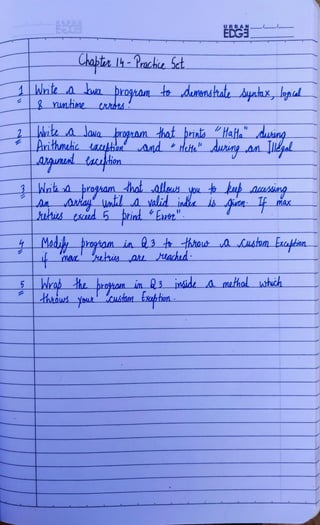 URBAN
EDGE
Chapter 14 - Practice Set
1 Write a Java program to demonstrate syntax, logical
& runtime errors.
2 Write a Java program that prints "HaHa" during
Arithmetic exception and "HeHe" during an Illegal
argument exception
3 Write a program that allows you to keep accessing
an array until a valid index is given. If max
retries exceed 5 print "Error".
4 Modify program in Q3 to throw a custom Exception
if max retries are reached.
5 Wrap the program in Q3 inside a method which
throws your custom Exception.